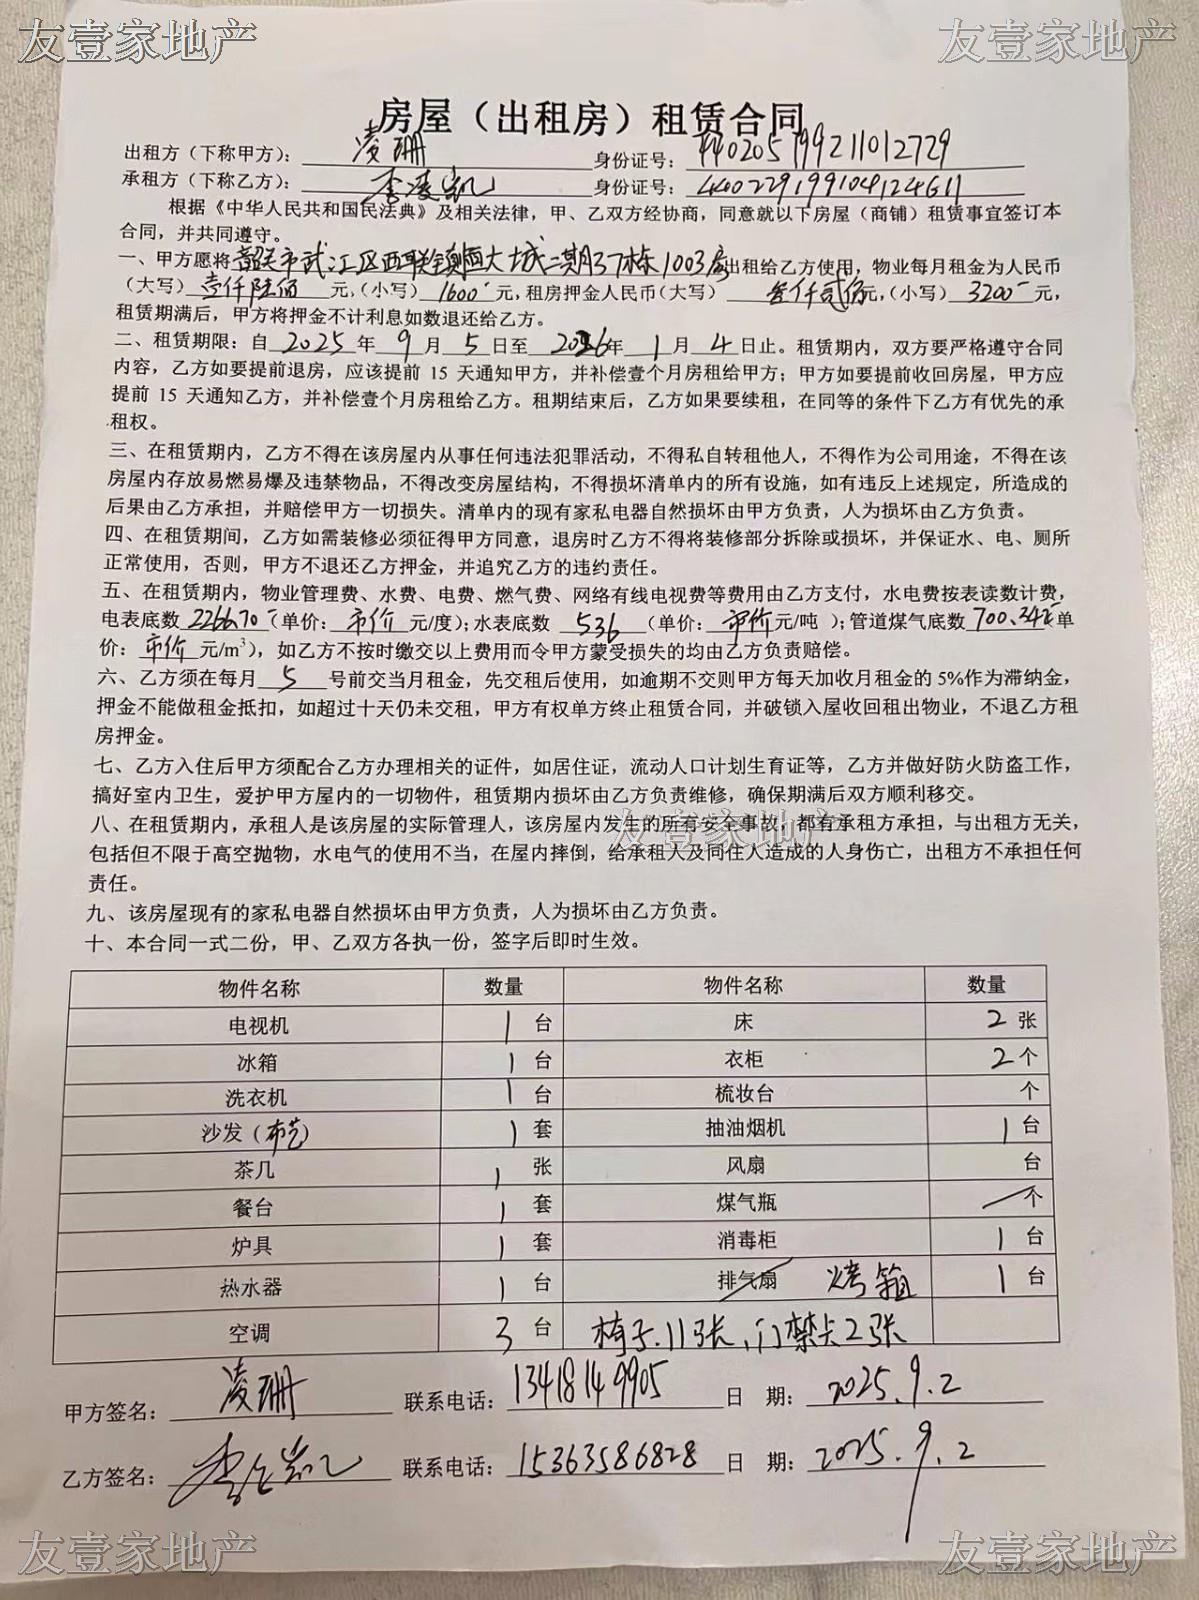 友壹家地产 友壹家地产
房屋（出租房）租赁合同
出租方（下称甲方）：凌珊 身份证号：440205199211012729
承租方（下称乙方）：李凌凯 身份证号：440229199104124611
根据《中华人民共和国民法典》及相关法律，甲、乙双方经协商，同意就以下房屋（商铺）租赁事宜签订本
合同，并共同遵守。
一、甲方愿将韶关市武江区西联镇恒大城二期37栋1003房出租给乙方使用，物业每月租金为人民币
（大写）壹仟陆佰元，（小写）1600元，租房押金人民币（大写）叁仟贰佰元，（小写）3200元，
租赁期满后，甲方将押金不计利息如数退还给乙方。
二、租赁期限：自2025年9月5日至2026年1月4日止。租赁期内，双方要严格遵守合同
内容，乙方如要提前退房，应该提前 15 天通知甲方，并补偿壹个月房租给甲方；甲方如要提前收回房屋，甲方应
提前 15 天通知乙方，并补偿壹个月房租给乙方。租期结束后，乙方如果要续租，在同等的条件下乙方有优先的承
租权。
三、在租赁期内，乙方不得在该房屋内从事任何违法犯罪活动，不得私自转租他人，不得作为公司用途，不得在该
房屋内存放易燃易爆及违禁物品，不得改变房屋结构，不得损坏清单内的所有设施，如有违反上述规定，所造成的
后果由乙方承担，并赔偿甲方一切损失。清单内的现有家私电器自然损坏由甲方负责，人为损坏由乙方负责。
四、在租赁期间，乙方如需装修必须征得甲方同意，退房时乙方不得将装修部分拆除或损坏，并保证水、电、厕所
正常使用，否则，甲方不退还乙方押金，并追究乙方的违约责任。
五、在租赁期内，物业管理费、水费、电费、燃气费、网络有线电视费等费用由乙方支付，水电费按表读数计费，
电表底数（单价：市价元/度）；水表底数 536（单价：市价元/吨 ）；管道煤气底数（单
价：市价元/m³），如乙方不按时缴交以上费用而令甲方蒙受损失的均由乙方负责赔偿。
六、乙方须在每月5号前交当月租金，先交租后使用，如逾期不交则甲方每天加收月租金的 5%作为滞纳金，
押金不能做租金抵扣，如超过十天仍未交租，甲方有权单方终止租赁合同，并破锁入屋收回租出物业，不退乙方租
房押金。
七、乙方入住后甲方须配合乙方办理相关的证件，如居住证，流动人口计划生育证等，乙方并做好防火防盗工作，
搞好室内卫生，爱护甲方屋内的一切物件，租赁期内损坏由乙方负责维修，确保期满后双方顺利移交。
八、在租赁期内，承租人是该房屋的实际管理人，该房屋内发生的所有安全事故，都有承租方承担，与出租方无关，
友壹家地产
包括但不限于高空抛物，水电气的使用不当，在屋内摔倒，给承租人及同住人造成的人身伤亡，出租方不承担任何
责任。
九、该房屋现有的家私电器自然损坏由甲方负责，人为损坏由乙方负责。
十、本合同一式二份，甲、乙双方各执一份，签字后即时生效。
物件名称 数量 物件名称 数量
电视机 1 台 床 2 张
冰箱 1 台 衣柜 2 个
洗衣机 1 台 梳妆台 个
沙发（布艺） 1 套 抽油烟机 1 台
茶几 1 张 风扇 台
餐台 1 套 煤气瓶 个
炉具 1 套 消毒柜 1 台
热水器 1 台 排气扇 烤箱 1 台
空调 3 台 椅子.11张，门禁卡2张
甲方签名：凌珊 联系电话：13418149905 日 期：2025.9.2
乙方签名：李凌凯 联系电话：15363586828 日 期：2025.9.2
友壹家地产 友壹家地产